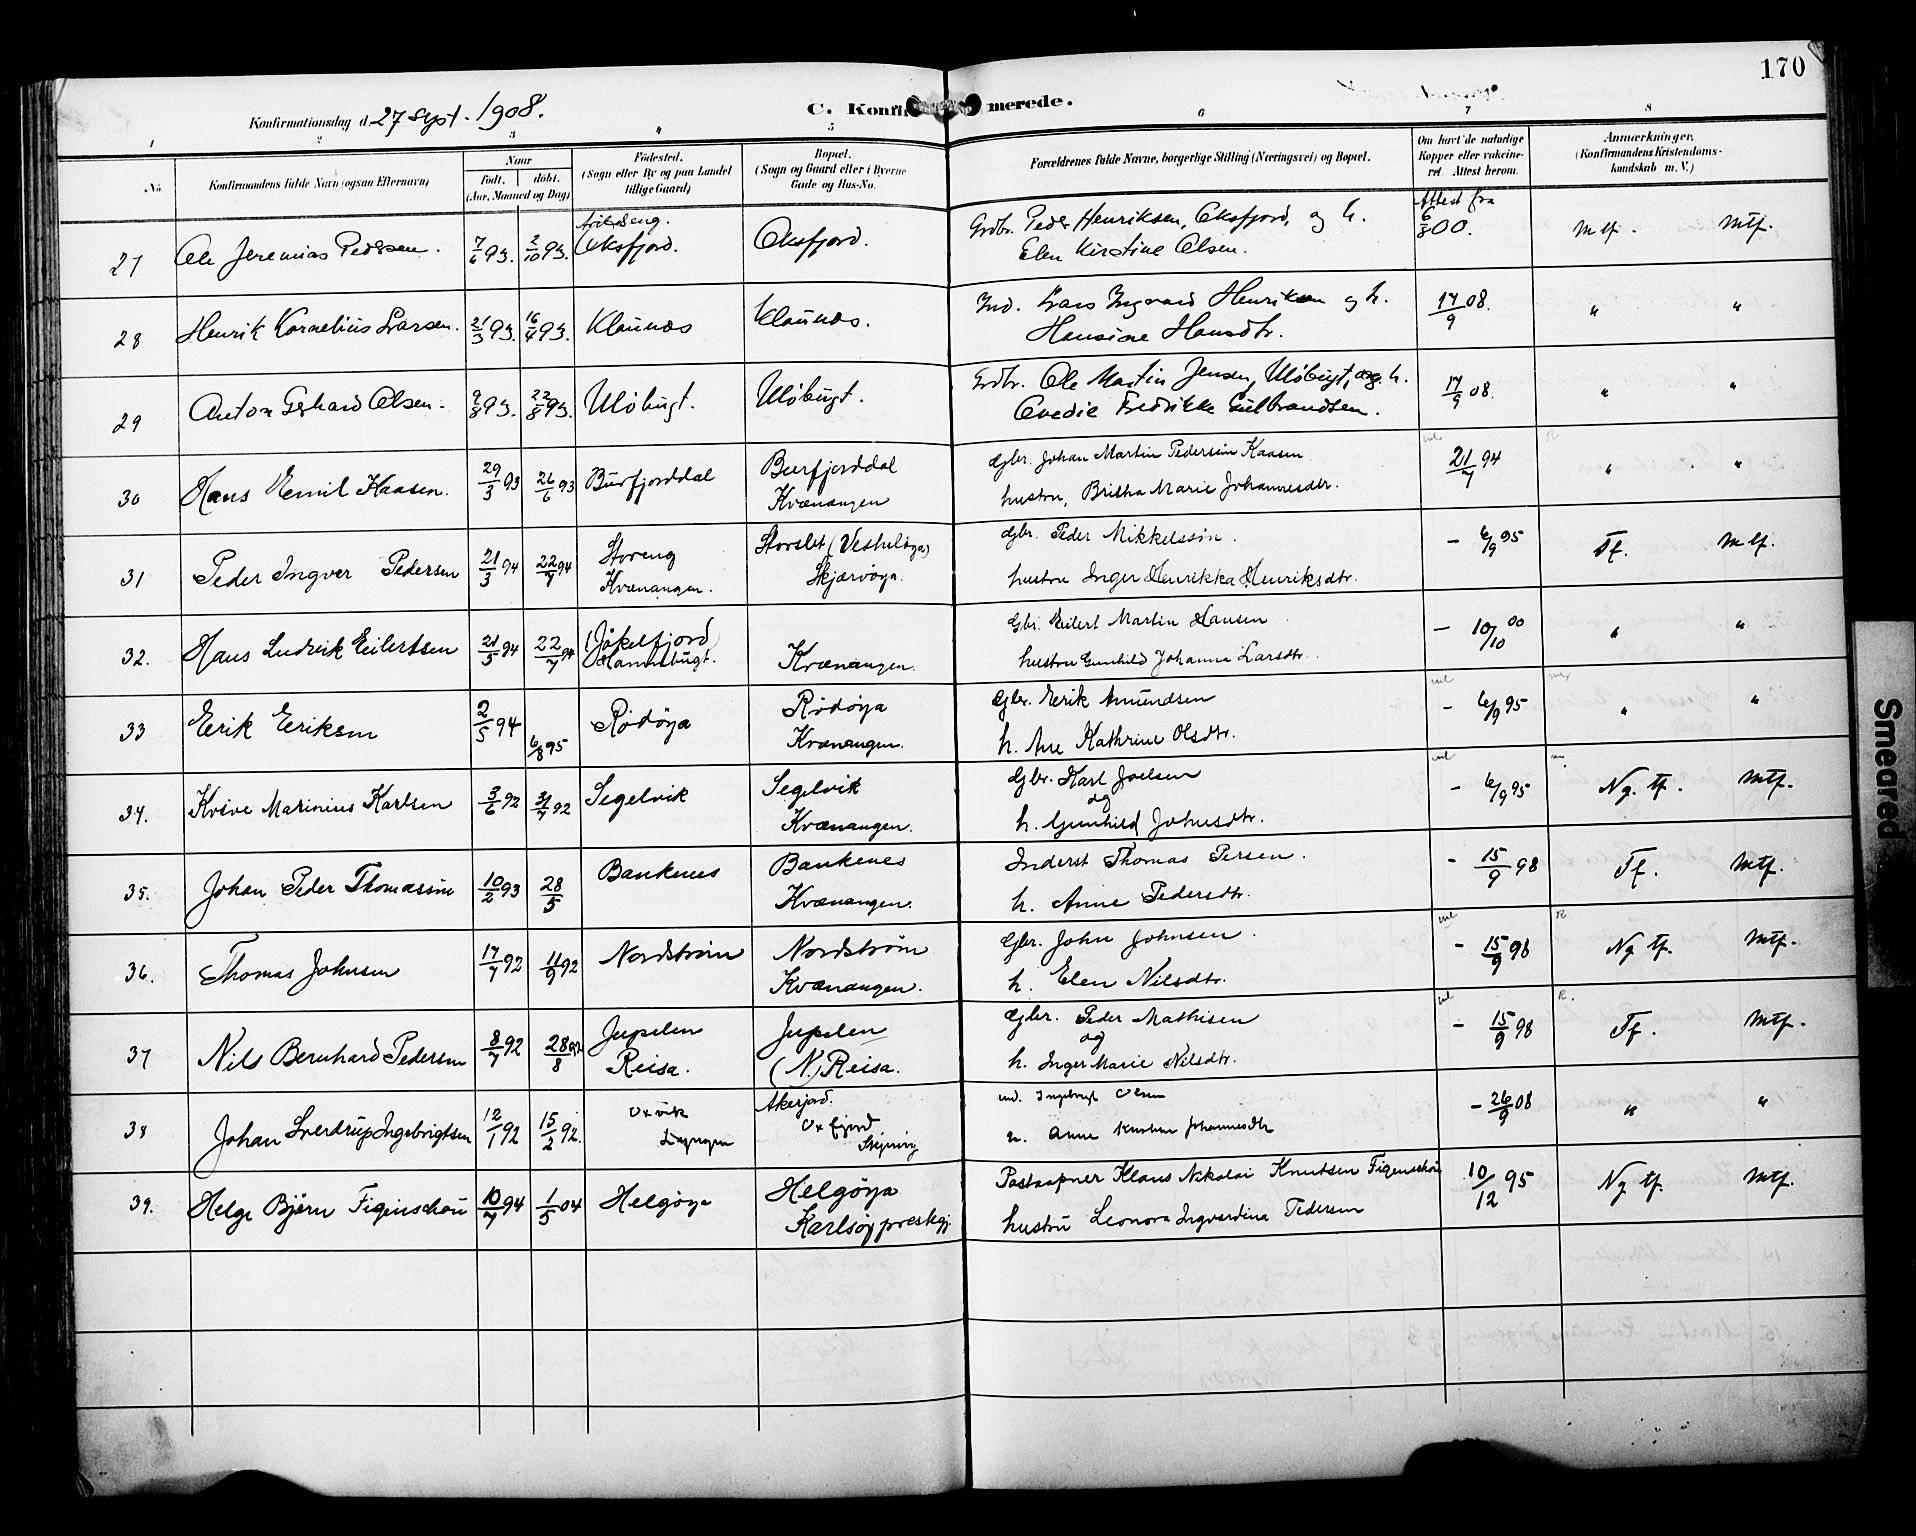 170
Konfirmationsdag d. 27 Sept. 1908.
C. Konfirmerede.
1 2 3 4 5 6 7 8
No. Konfirmandens fulde Navn (ogsaa Efternavn)
Naar
Födt. döbt.
(Aar, Maaned og Dag)
Födested.
(Sogn eller By og paa Landet
tillige Gaard)
Bopæl.
(Sogn og Gaard eller i Byerne
Gade og Hus-No.
Forældrenes fulde Navne, borgerlige Stilling (Næringsvei) og Bopæl.
Om havt de naturlige
Kopper eller vakcine-
ret. Attest herom.
Anmærkninger.
(Konfirmandens Kristendoms-
kundskab m. V.)
27 Ole Jeremias Pedersen. 7/6 93. 2/10 93. Oksfjord. Oksfjord. Grdbr. Peder Henriksen, Oksfjord, og h. Attest fra
Elen Kirstine Olsen. 6/8 00. mtf. mtf.
28 Henrik Kornelius Larsen. 21/3 93. 16/4 93. Klaunes Klaunes. Ind. Lars Ingvard Henriksen og h. 17/9 08. " "
Hansine Hansdtr.
29 Anton Gerhard Olsen. 9/8 93. 22/8 93. Ulöbugt. Ulöbugt. Grdbr. Ole Martin Jensen, Ulöbugt, og h. 17/9 08. " "
Ovedie Fredrikke Gulbrandsen.
30 Hans Emil Kaasen. 29/3 93 26/6 93 Burfjorddal Burfjorddal Gbr. Johan Martin Pedersen Kaasen 21/7 94 " "
Kvænangen hustru, Britha Marie Johannesdtr.
31 Peder Ingver Pedersen 21/3 94 22/7 94 Storeng Storslet (Vesteløya) gbr. Peder Mikkelsen. - 6/9 95 Tf. mtf.
Kvænangen. Skjærvøya. hustru Inger Henrikka Henriksdtr.
32. Hans Ludvik Eilertsen 21/5 94 22/7 94 (Jøkelfjord) Gbr. Eilert Martin Hansen - 10/10 00 " "
Hamnbugt. Kvænangen. hustru Gunhild Johanna Larsdtr.
33 Erik Eriksen 2/5 94 6/8 95 Rödöya Rödöya Gbr. Erik Amundsen - 6/9 95 " "
Kvænangen. h. Ane Kathrine Olsdtr.
34. Marinius Karlsen 3/6 92 31/7 92 Segelvik Segelvik Gbr. Karl Joelsen - 6/9 95 Ng. tf. mtf.
og
Kvænangen. h. Gunhild Johnsdtr.
35. Johan Peder Thomassen 10/2 93 28/5 Bankenes Bankenes Inderst Thomas Persen. - 15/9 98 Tf. mtf.
Kvænangen. h. Anne Pedersdtr.
36. Thomas Johnsen 17/7 92 11/9 92 Nordström Nordström Gbr. John Johnsen. - 15/9 98 Ng tf. mtf.
Kvænangen. h. Elen Nilsdtr.
37 Nils Bernhard Pedersen 8/7 92 28/8 92 Jupelen Jupelen Gbr. Peder Mathisen - 15/9 98 Tf. mtf.
og
Reisa. (N.) Reisa. h. Inger Marie Nilsdtr.
38 Johan Sverdrup Ingebrigtsen 12/1 92 15/2 92. Oxvik Akerjord. ind. Ingebrigt Olsen - 26/9 08 " "
Lyngen Oxfjord h. Anne Kirstine Johannesdtr
39. Helge Björn Figenschou 10/7 94 1/5 04 Helgöya Helgöya Postaapner Klaus Nikolai Knutsen Figenschou 10/12 95 Ng tf. mtf.
Karlsöy prestegj hustru Leonora Ingvardina Pedersen
Smeared